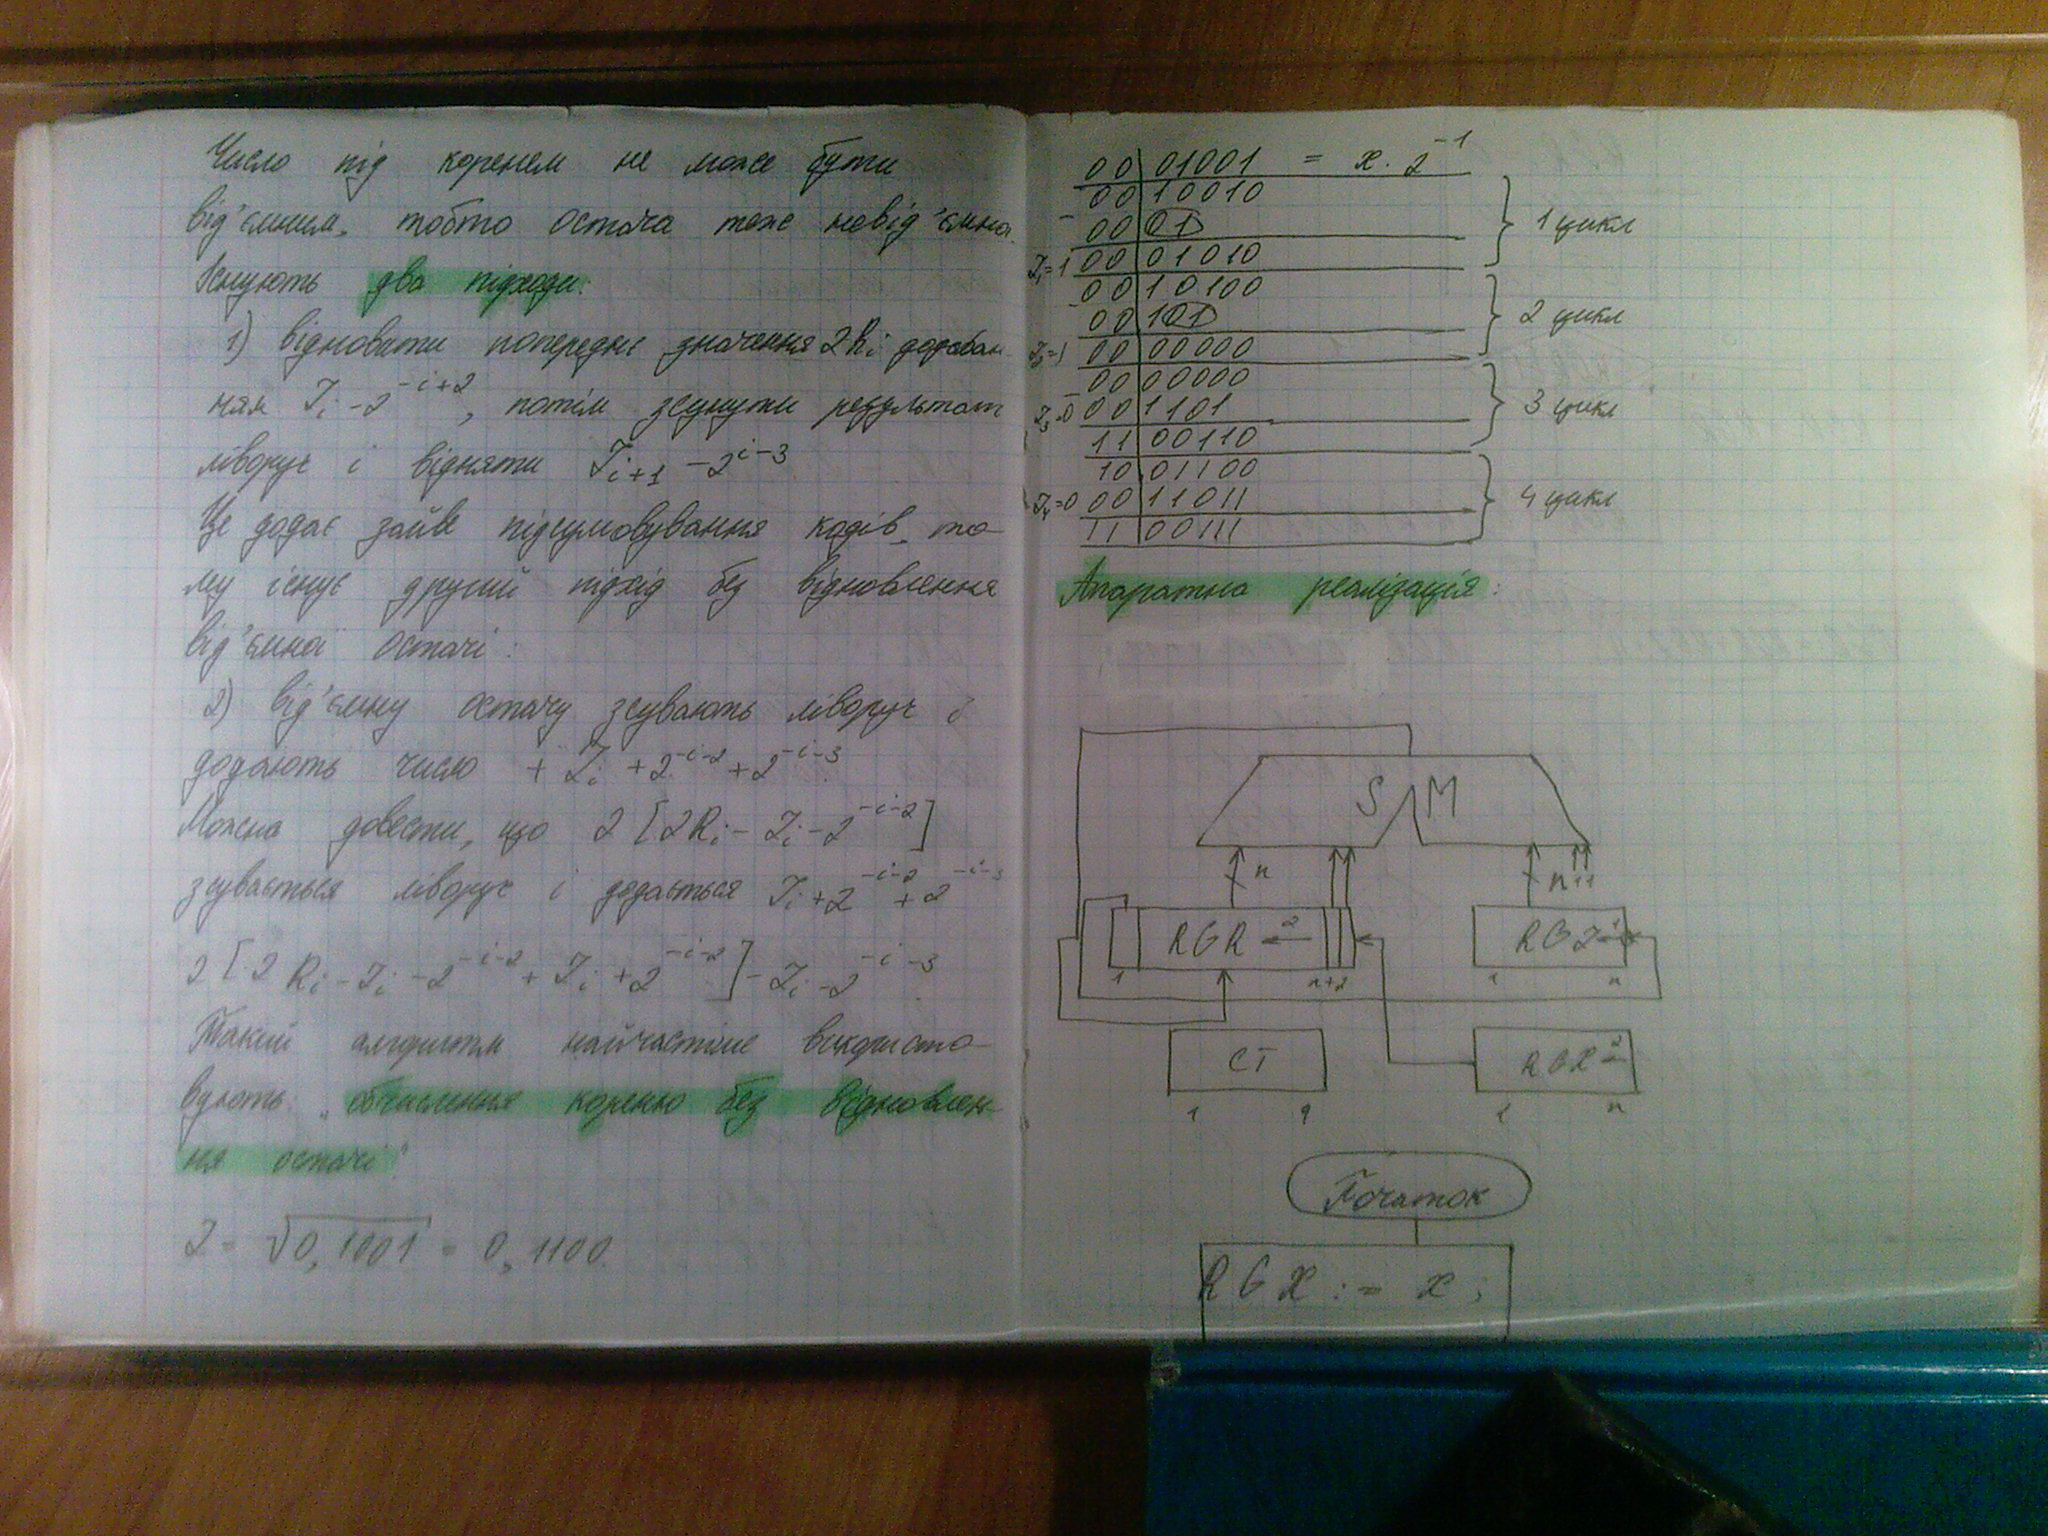 Число під коренем не може бути
від'ємним, тобто остача теж невід'ємна.
Існують два підходи:
1) відновити попереднє значення 2Rᵢ додаван-
ням Zᵢ - 2^-i+2, потім зсунути результат
ліворуч і відняти Zᵢ₊₁ - 2^i-3
Це додає зайве підсумовування кодів, то-
му існує другий підхід без відновлення
від'ємної остачі:
2) від'ємну остачу зсувають ліворуч і
додають число + Zᵢ + 2^-i-2 + 2^-i-3
Можна довести, що 2 [2Rᵢ - Zᵢ - 2^-i-2]
зсувається ліворуч і додається Zᵢ + 2^-i-2 + 2^-i-3
2 [2Rᵢ - Zᵢ - 2^-i-2 + Zᵢ + 2^-i-2] - Zᵢ - 2^-i-3
Такий алгоритм найчастіше використо-
вують „обчислення кореню без відновлен-
ня остачі"
Z = √0,1001 = 0,1100.
00 01001 = x · 2^-1
00 10010
- 00 01
1 цикл
Z₁=1 00 01010
00 10100
- 00 101
2 цикл
Z₂=1 00 00000
00 00000
- 00 1101
3 цикл
Z₃=0
11 00110
10 01100
Z₄=0 00 11011
4 цикл
11 00111
Апаратна реалізація:
SM
n n 11
RGR ←2 RGZ ←1
1 n+2 1 n
CT RGX ←2
1 q 1 n
Початок
RGX := x;